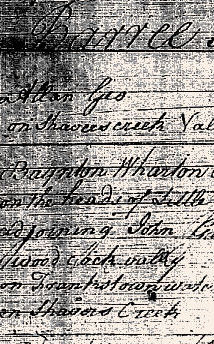 Barree
n Allan Geo
on Shavers creek Val
Baynton Wharton
on the heads of Little
adjoining John
wood cock vally
on Frankstown
on Shavers Creek